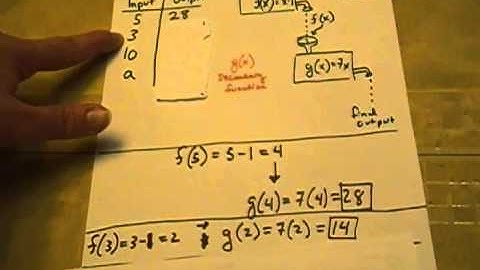 Input Output
5 28
3
10
a
f(x)=x-1
f(x)
g(x)=7x
g(x)
Secondary
function
final
output
f(5)=5-1=4
g(4)=7(4)=28
f(3)=3-1=2 → g(2)=7(2)=14